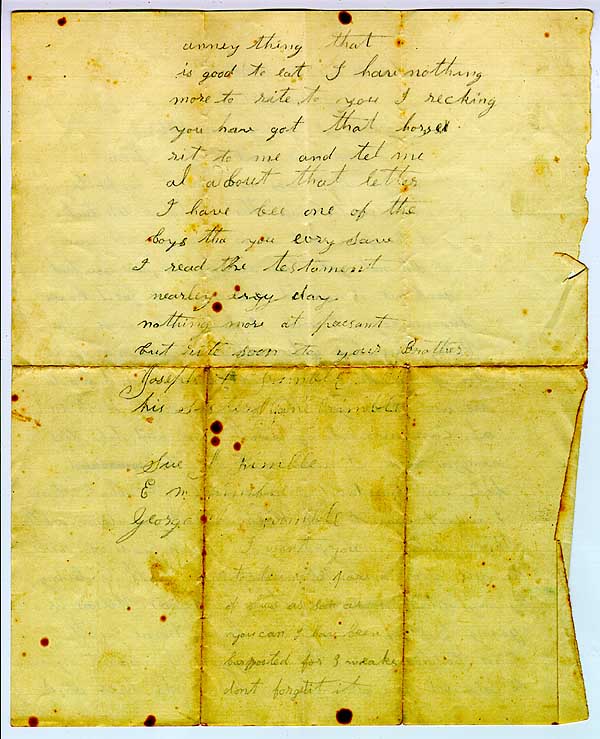 anney thing that
is good to eat I have nothing
more to rite to you I recking
you have got that horse
rit to me and tel me
al about that letter
I have bee one of the
boys tha you evry save
I read the testament
nearley evry day
nothing more at preasant
but rite soon to your Brother
Joseph
his
Sue
E m
George
I want you
to
of as
you can I have been
barfooted for 3 weake
dont forgit it